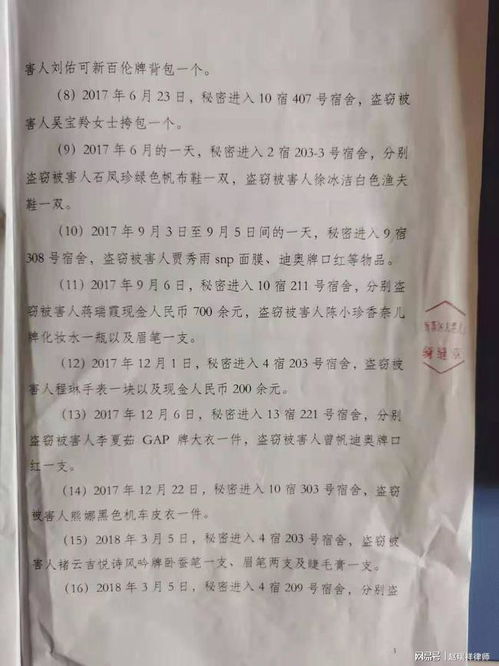 害人刘佑可新百伦牌背包一个。
(8) 2017 年 6 月 23 日，秘密进入 10 宿 407 号宿舍，盗窃被
害人吴宝羚女士挎包一个。
(9) 2017 年 6 月的一天，秘密进入 2 宿 203-3 号宿舍，分别
盗窃被害人石凤珍绿色帆布鞋一双，盗窃被害人徐冰洁白色渔夫
鞋一双。
(10) 2017 年 9 月 3 日至 9 月 5 日间的一天，秘密进入 9 宿
308 号宿舍，盗窃被害人贾秀雨 snp 面膜、迪奥牌口红等物品。
(11) 2017 年 9 月 6 日，秘密进入 10 宿 211 号宿舍，分别盗
窃被害人蒋瑞霞现金人民币 700 余元，盗窃被害人陈小珍香奈儿
牌化妆水一瓶以及眉笔一支。
(12) 2017 年 12 月 1 日，秘密进入 4 宿 203 号宿舍，盗窃被
害人程琳手表一块以及现金人民币 200 余元。
(13) 2017 年 12 月 6 日，秘密进入 13 宿 221 号宿舍，分别
盗窃被害人李夏茹 GAP 牌大衣一件，盗窃被害人曾帆迪奥牌口
红一支。
(14) 2017 年 12 月 22 日，秘密进入 10 宿 303 号宿舍，盗窃
被害人熊娜黑色机车皮衣一件。
(15) 2018 年 3 月 5 日，秘密进入 4 宿 203 号宿舍，盗窃被
害人褚云吉悦诗风吟牌卧蚕笔一支、眉笔两支及睫毛膏一支。
(16) 2018 年 3 月 5 日，秘密进入 4 宿 209 号宿舍，分别盗
搜狐号@赵瑞祥律师